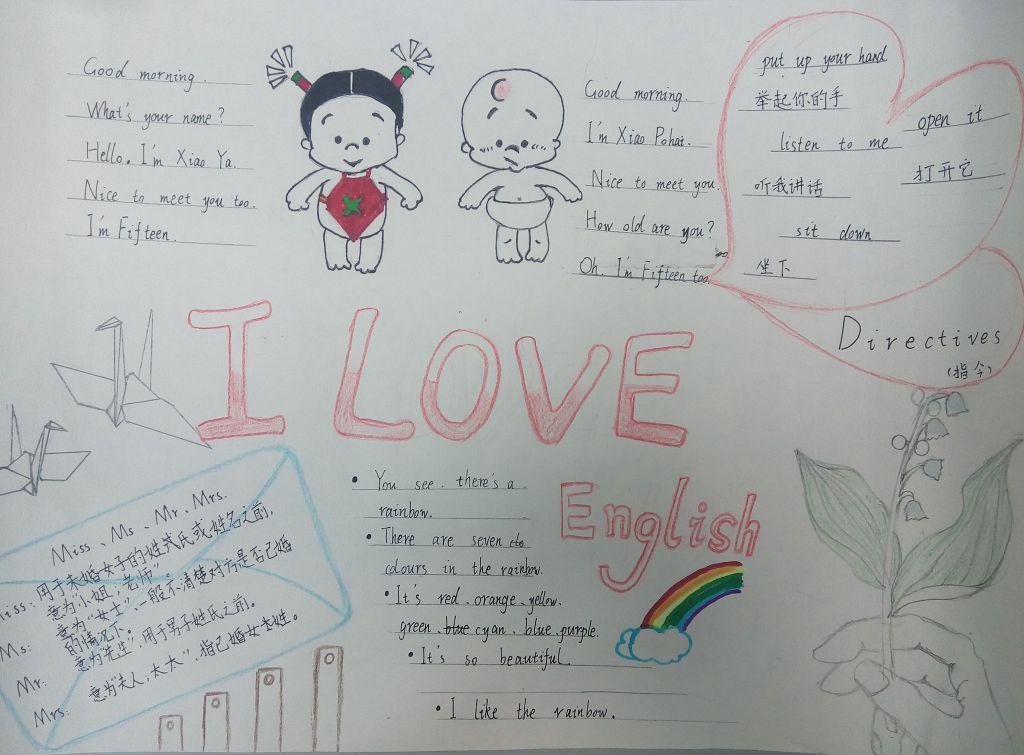 Good morning.
What's your name?
Hello. I'm Xiao Ya.
Nice to meet you too.
I'm Fifteen.
Good morning.
I'm Xiao Pohai.
Nice to meet you.
How old are you?
Oh. I'm Fifteen too.
put up your hand
举起你的手
listen to me
听我讲话
sit down
坐下
open it
打开它
Directives
(指令)
I LOVE
English
Miss、Ms、Mr、Mrs.
Miss: 用于未婚女子的姓氏或姓名之前,
意为"小姐;老师"。
Ms: 意为"女士",一般不清楚对方是否已婚
的情况下
Mr: 意为"先生",用于男子姓氏之前。
Mrs: 意为"夫人;太太",指已婚女性。
• You see. there's a
rainbow.
• There are seven
colours in the rainbow.
• It's red、orange、yellow、
green、blue cyan、blue、purple.
• It's so beautiful.
• I like the rainbow.